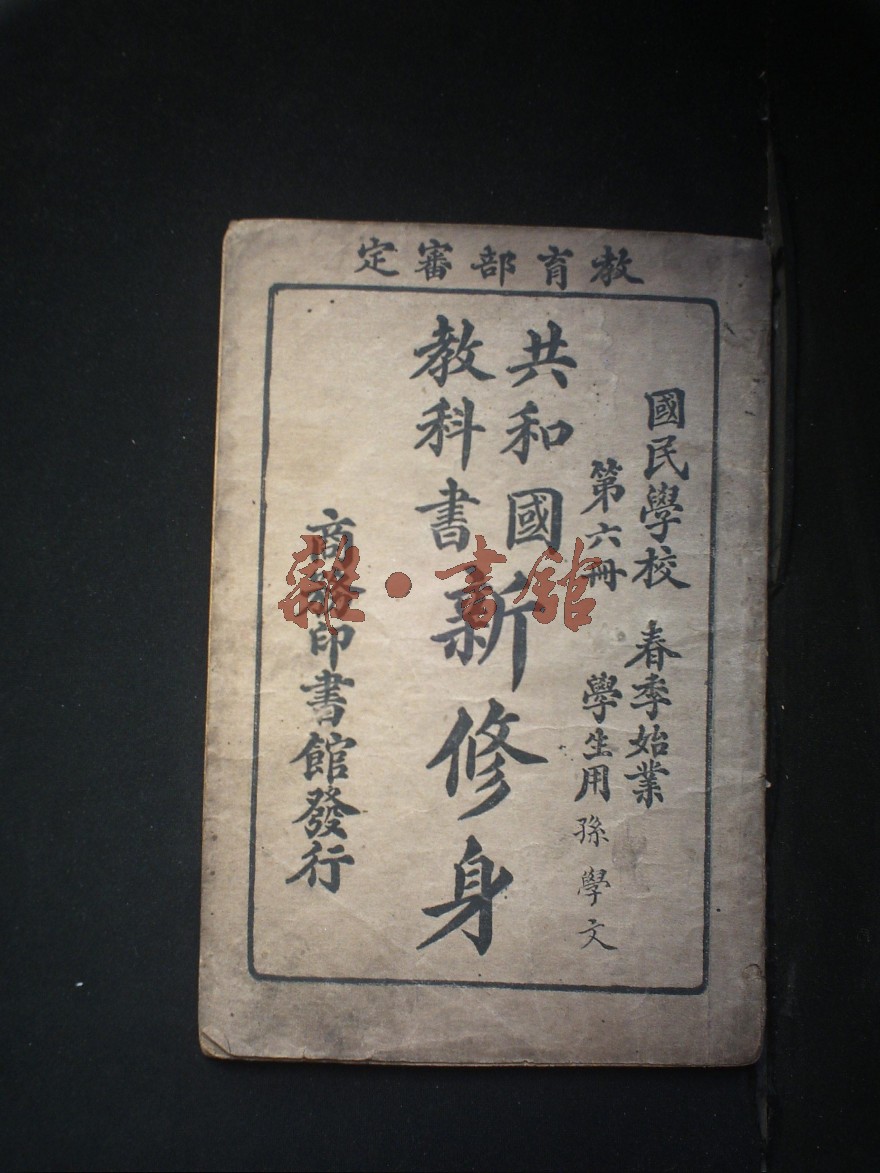 教育部審定
國民學校 春季始業
第六冊 學生用
孫學文
共和國
教科書
新修身
商務印書館發行
雜·書館